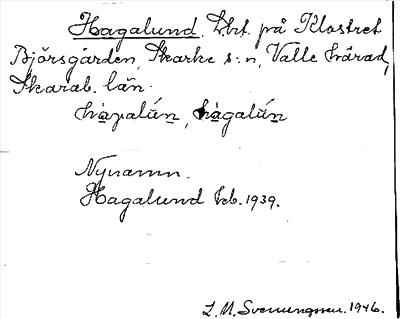 Hagalund. Lht. på Klostret
Björsgården, Skarke s:n, Valle härad,
Skarab. län.
hàgalún, hàgalún
Nynamn.
Hagalund Ivb. 1939.
L. M. Svenungsson. 1946.